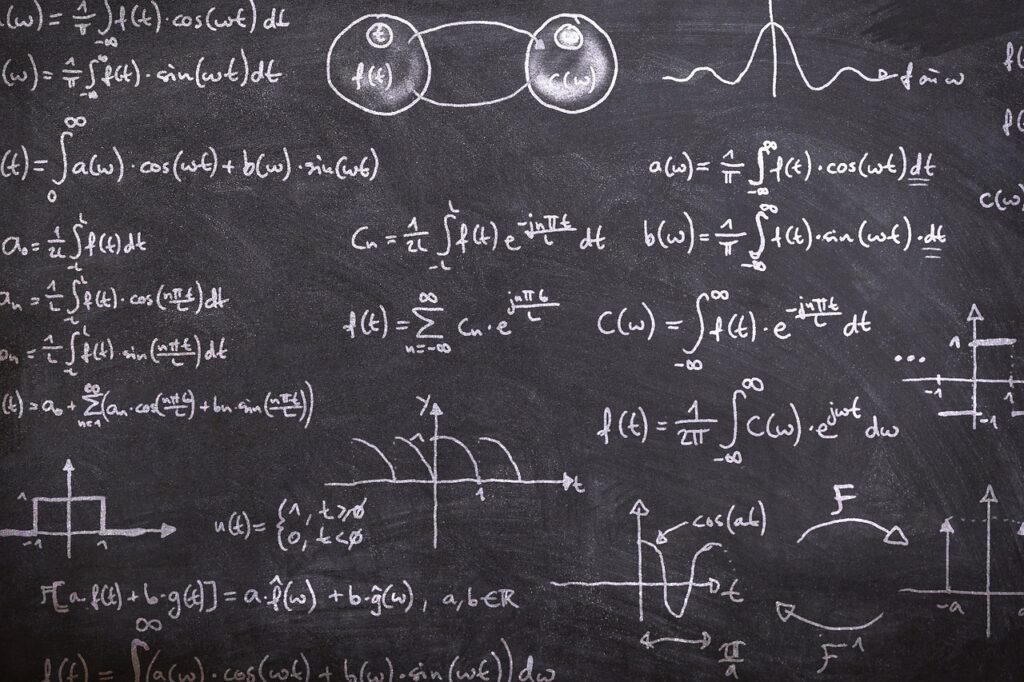 (ω) = 1/π ∫_{-∞} f(t)·cos(ωt) dt
(ω) = 1/π ∫_{-∞}^{∞} f(t)·sin(ωt) dt
t
f(t)
C(ω)
f ω
f(
f(
(t) = ∫_0^∞ a(ω)·cos(ωt) + b(ω)·sin(ωt)
a(ω) = 1/π ∫_{-∞}^{∞} f(t)·cos(ωt) dt
C(ω)
a₀ = 1/2L ∫_{-L}^{L} f(t) dt
Cn = 1/2L ∫_{-L}^{L} f(t) e^{-jnπt/L} dt
b(ω) = 1/π ∫_{-∞}^{∞} f(t)·sin(ωt)·dt
an = 1/L ∫_{-L}^{L} f(t)·cos(nπt/L) dt
f(t) = ∑_{n=-∞}^{∞} Cn·e^{jnπt/L}
C(ω) = ∫_{-∞}^{∞} f(t)·e^{-jnπt/L} dt
bn = 1/L ∫_{-L}^{L} f(t)·sin(nπt/L) dt
...
1
-1
1
-1
(t) = a₀ + ∑_{n=1}^{∞} (an·cos(nπt/L) + bn·sin(nπt/L))
y
1
1
t
f(t) = 1/2π ∫_{-∞}^{∞} C(ω)·e^{jωt} dω
1
-1
1
u(t) = {1, t≥0
0, t<0
cos(at)
t
π/a
F
F⁻¹
-a
F[a·f(t) + b·g(t)] = a·f̂(ω) + b·ĝ(ω), a,b∈ℝ
f(t) = ∫^∞ (a(ω)·cos(ωt) + b(ω)·sin(ωt)) dω